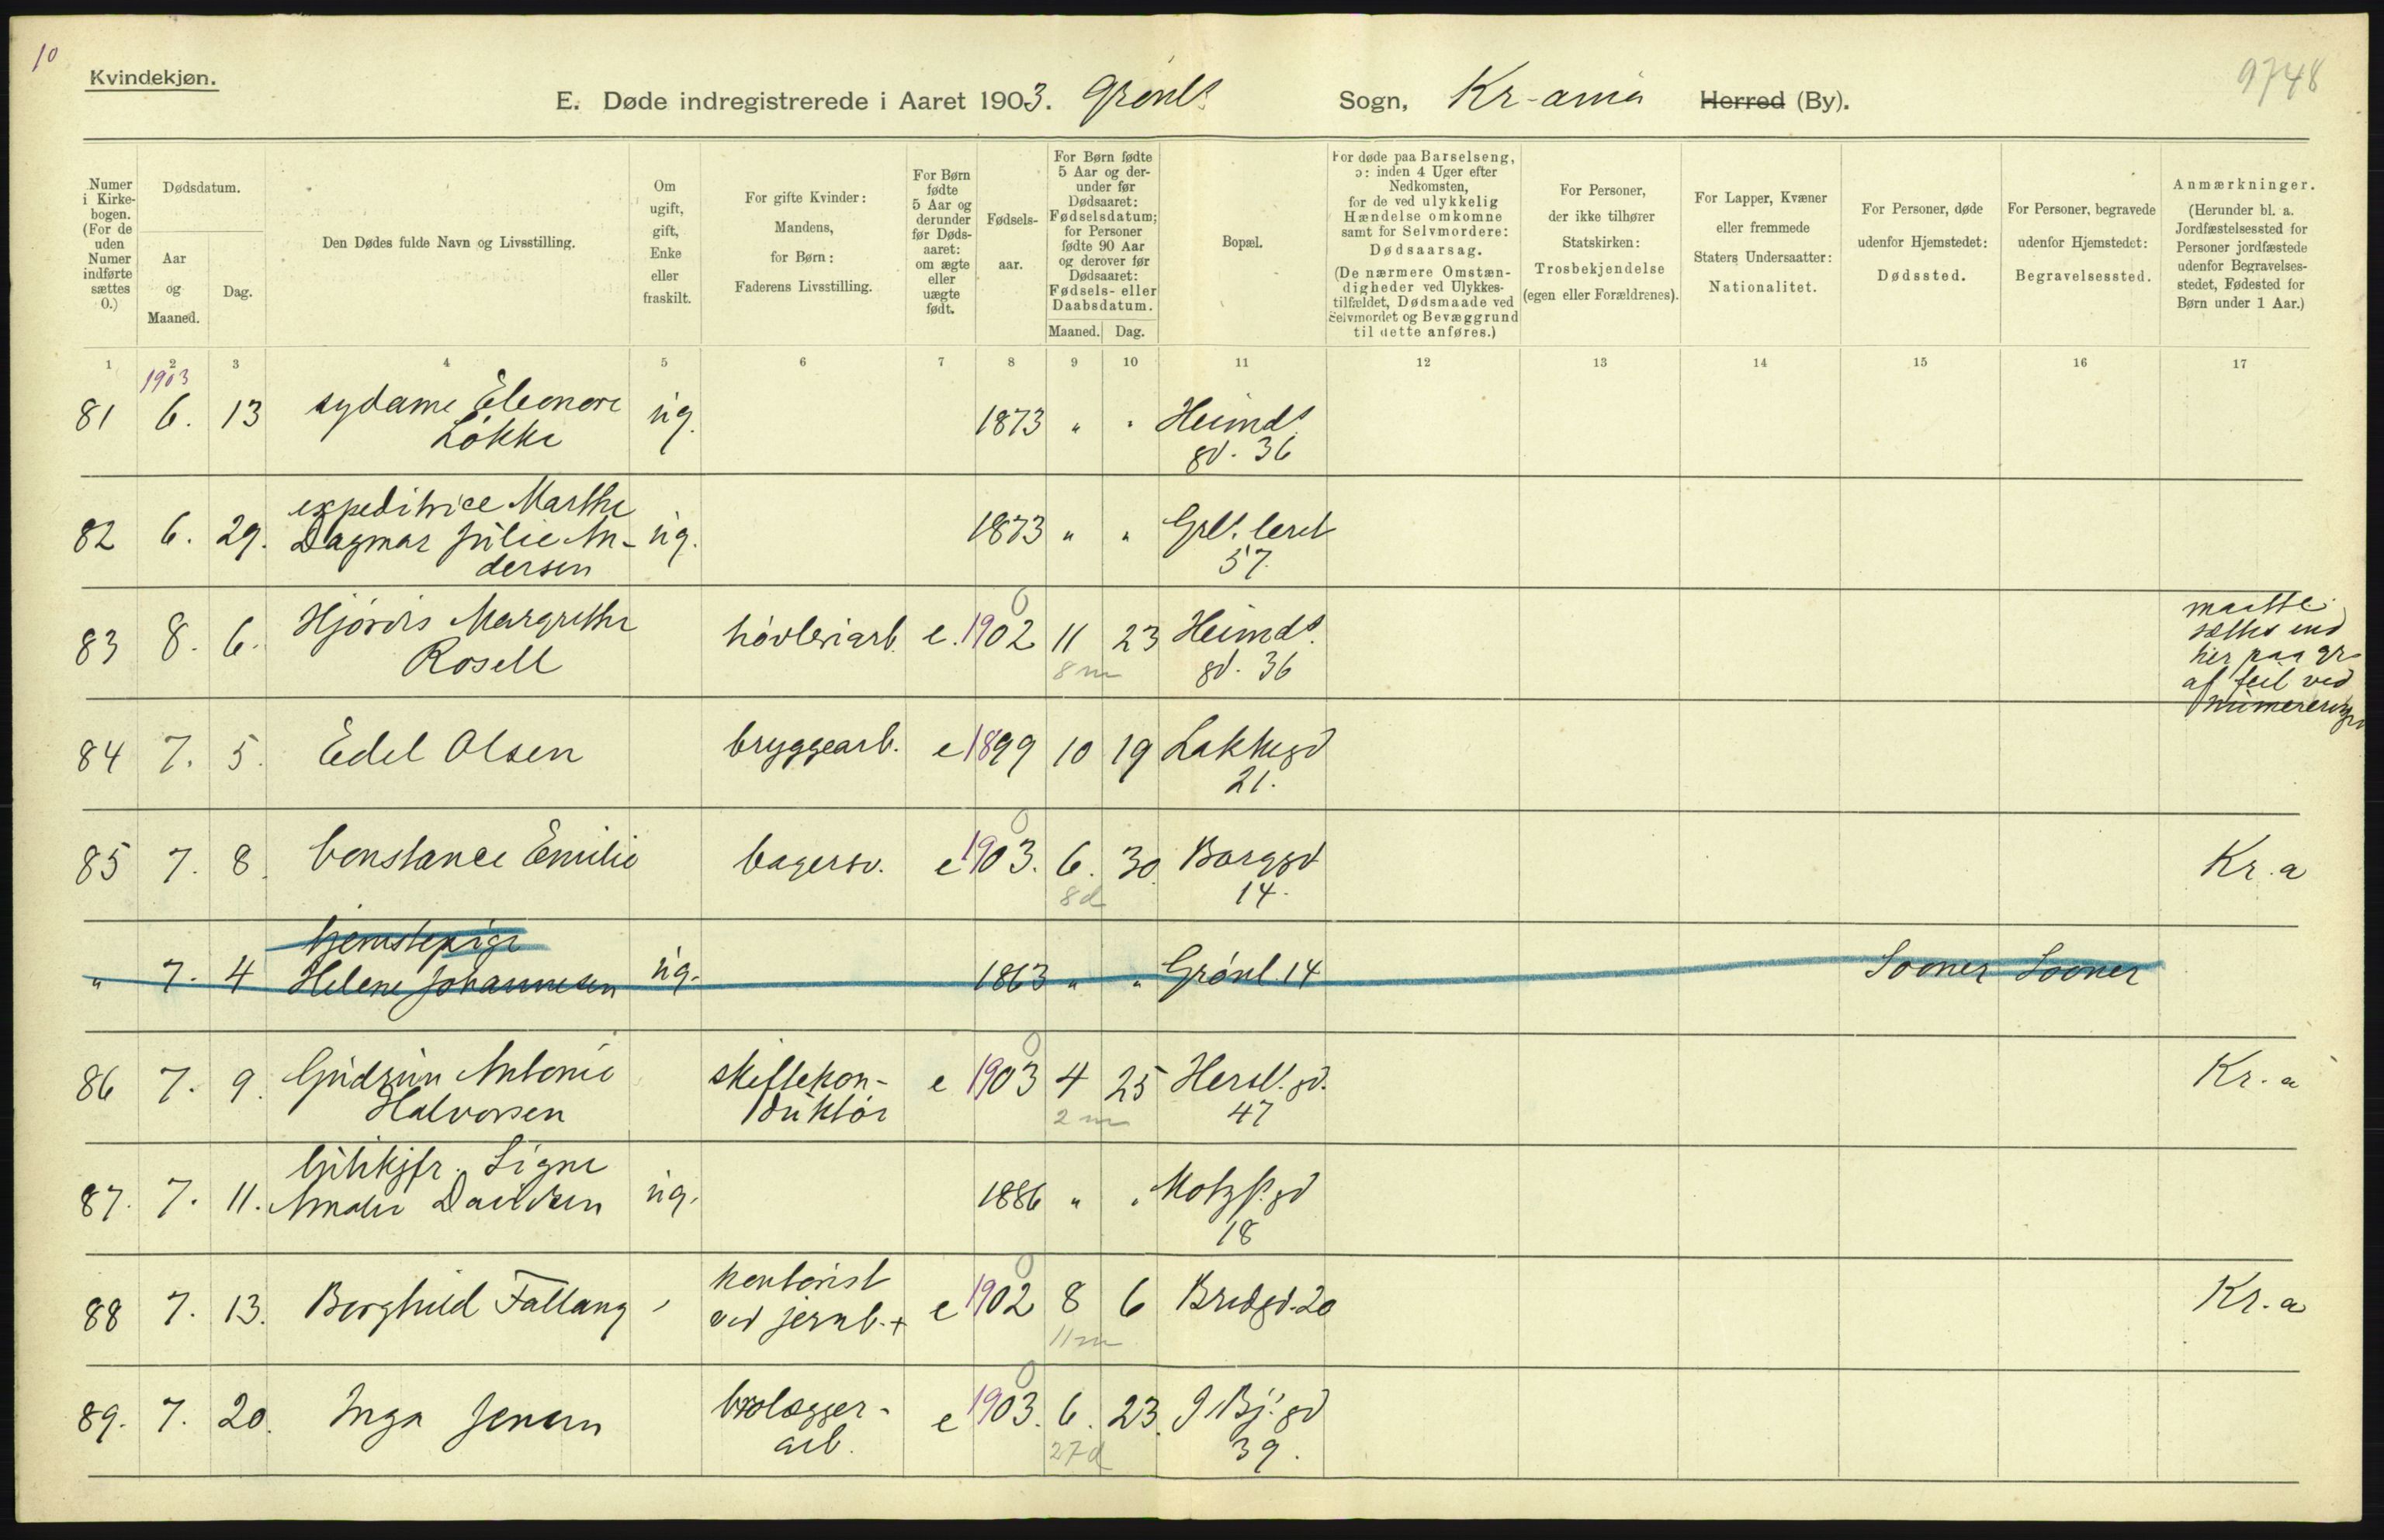 10
Kvindekjøn.
9748
E. Døde indregistrerede i Aaret 1903. Grønl^s. Sogn, Kr-ania Herred (By).
Numer i Kirkebogen. (For de uden Numer indførte sættes 0.)
Dødsdatum.
Aar og Maaned.
Dag.
Den Dødes fulde Navn og Livsstilling.
Om ugift, gift, Enke eller fraskilt.
For gifte Kvinder: Mandens, for Børn: Faderens Livsstilling.
For Børn fødte 5 Aar og derunder før Dødsaaret: om ægte eller uægte født.
Fødselsaar.
For Børn fødte 5 Aar og derunder før Dødsaaret: Fødselsdatum; for Personer fødte 90 Aar og derover før Dødsaaret: Fødsels- eller Daabsdatum.
Maaned. Dag.
Bopæl.
For døde paa Barselseng, ɔ: inden 4 Uger efter Nedkomsten, for de ved ulykkelig Hændelse omkomne samt for Selvmordere: Dødsaarsag. (De nærmere Omstændigheder ved Ulykkestilfældet, Dødsmaade ved Selvmordet og Bevæggrund til dette anføres.)
For Personer, der ikke tilhører Statskirken: Trosbekjendelse (egen eller Forældrenes).
For Lapper, Kvæner eller fremmede Staters Undersaatter: Nationalitet.
For Personer, døde udenfor Hjemstedet: Dødssted.
For Personer, begravede udenfor Hjemstedet: Begravelsessted.
Anmærkninger. (Herunder bl. a. Jordfæstelsessted for Personer jordfæstede udenfor Begravelsesstedet, Fødested for Børn under 1 Aar.)
1 2 3 4 5 6 7 8 9 10 11 12 13 14 15 16 17
1903
81 6. 13 sydame Eleonore ug. 1873 " " Heimd^s
Løkke gd. 36
expeditrice Marthe
82 6. 29. Dagmar Julie An- ug. 1873 " " Grl^s. leret
dersen 57.
83 8. 6. Hjørdis Margrethe høvleriarb. e. 1902 11 23 Heimd^s.
Rosell 8 m gd. 36
maatte
sættes ind
her paa gr
af feil ved
numereringen
84 7. 5. Edel Olsen bryggearb. e 1899 10 19 Lakkegd
21.
85 7. 8. Constance Emilie bagersv. e 1903. 6. 30. Borggd Kr.a
8d 14.
tjenstepige
" 7. 4 Helene Johannesen ug. 1863 " " Grønl. 14 Sooner Sooner
86 7. 9. Gudrun Antonie skiftekon- e 1903 4 25 Hersl^s. gd. Kr.a
Halvorsen duktør 2 m 47
butikjfr. Signe
87. 7. 11. Amalie Davidsen ug. 1886 " " Motzf^s. gd
18
kontorist
88 7. 13. Borghild Fallang ved jernb. + e 1902 8 6 Bredgd. 20 Kr.a
11 m
89. 7. 20. Inga Jensen brolægger- e 1903. 6. 23. J. Bj^s. gd
arb. 27d 39.